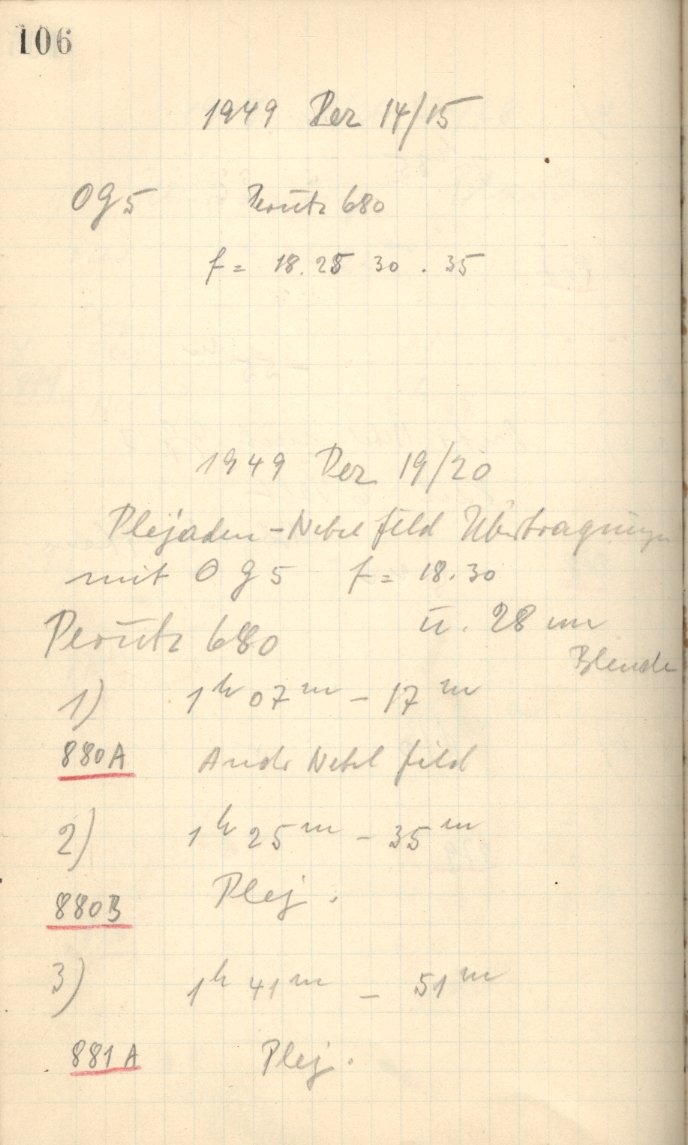 106
1949 Dez 14/15
OG5 Perutz 680
f = 18. 25 30 . 35
1949 Dez 19/20
Plejaden-Nebel feld Übertragungen
mit OG5 f = 18.30
Perutz 680 u. 28 mm
Blende
1) 1h 07m – 17m
880A Andr Nebel feld
2) 1h 25m – 35m
880B Plej.
3) 1h 41m – 51m
881A Plej.